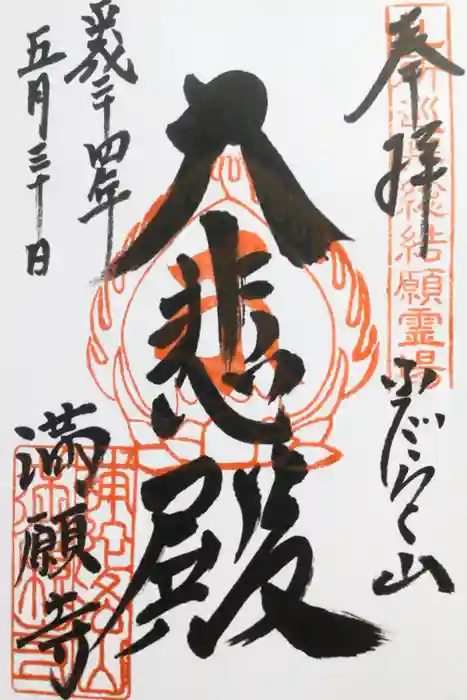 奉拝
巡礼総結願霊場
ふだらく山
大悲殿
平成二十四年
五月三十日
満願寺